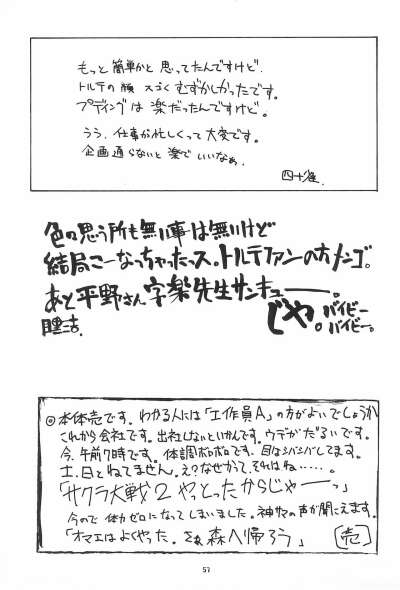 もっと簡単かと思ってたんですけど、
トルテの顔 スゴくむずかしかったです。
プディングは楽だったんですけど。
うう、仕事が忙しくって大変です。
企画通らないと楽でいいなぁ。
四十雀
色の思う所も無い事は無いけど
結局こーなっちゃったっス。トルテファンの方メンゴ。
あと平野さん 字楽先生サンキュー。
じゃ。バイビー
バイビー。
◎本体売です。わかる人には「工作員A」の方がよいでしょうか
これから会社です。出社しないといかんです。ウデがだるいです。
今、午前7時です。体調ボロボロです。目はシバシバしてます。
土、日とねてません。え?なぜかって、それはね……。
「サクラ大戦2 やっとったからじゃーっ」
今ので体力ゼロになってしまいました。神サマの声が聞こえます。
「オマエはよくやった。さぁ森へ帰ろう」 [売]
57